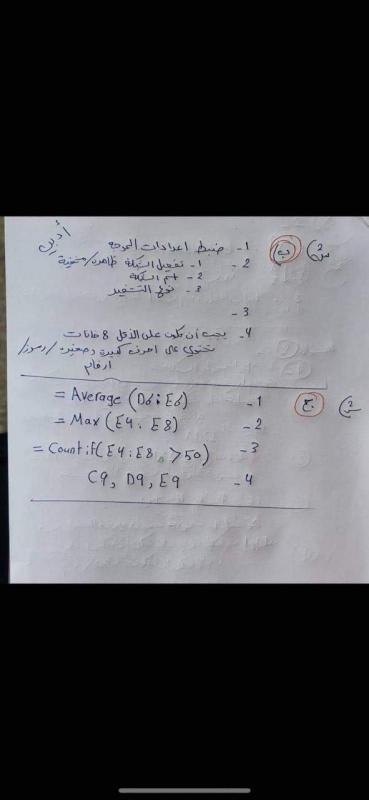 أدبي
س2) ب) 1- ضبط اعدادات الموجه
2- 1- تفعيل الشبكة ظاهرة/مخفية
2- اسم الشبكة
3- نوع التشفير
3-
4- يجب أن تكون على الأقل 8 خانات
تحتوي على احرف كبيرة وصغيرة/رموز/
ارقام
س2) ج) 1- = Average (D6:E6)
2- = Max (E4:E8)
3- = Countif(E4:E8, >50)
4- C9, D9, E9